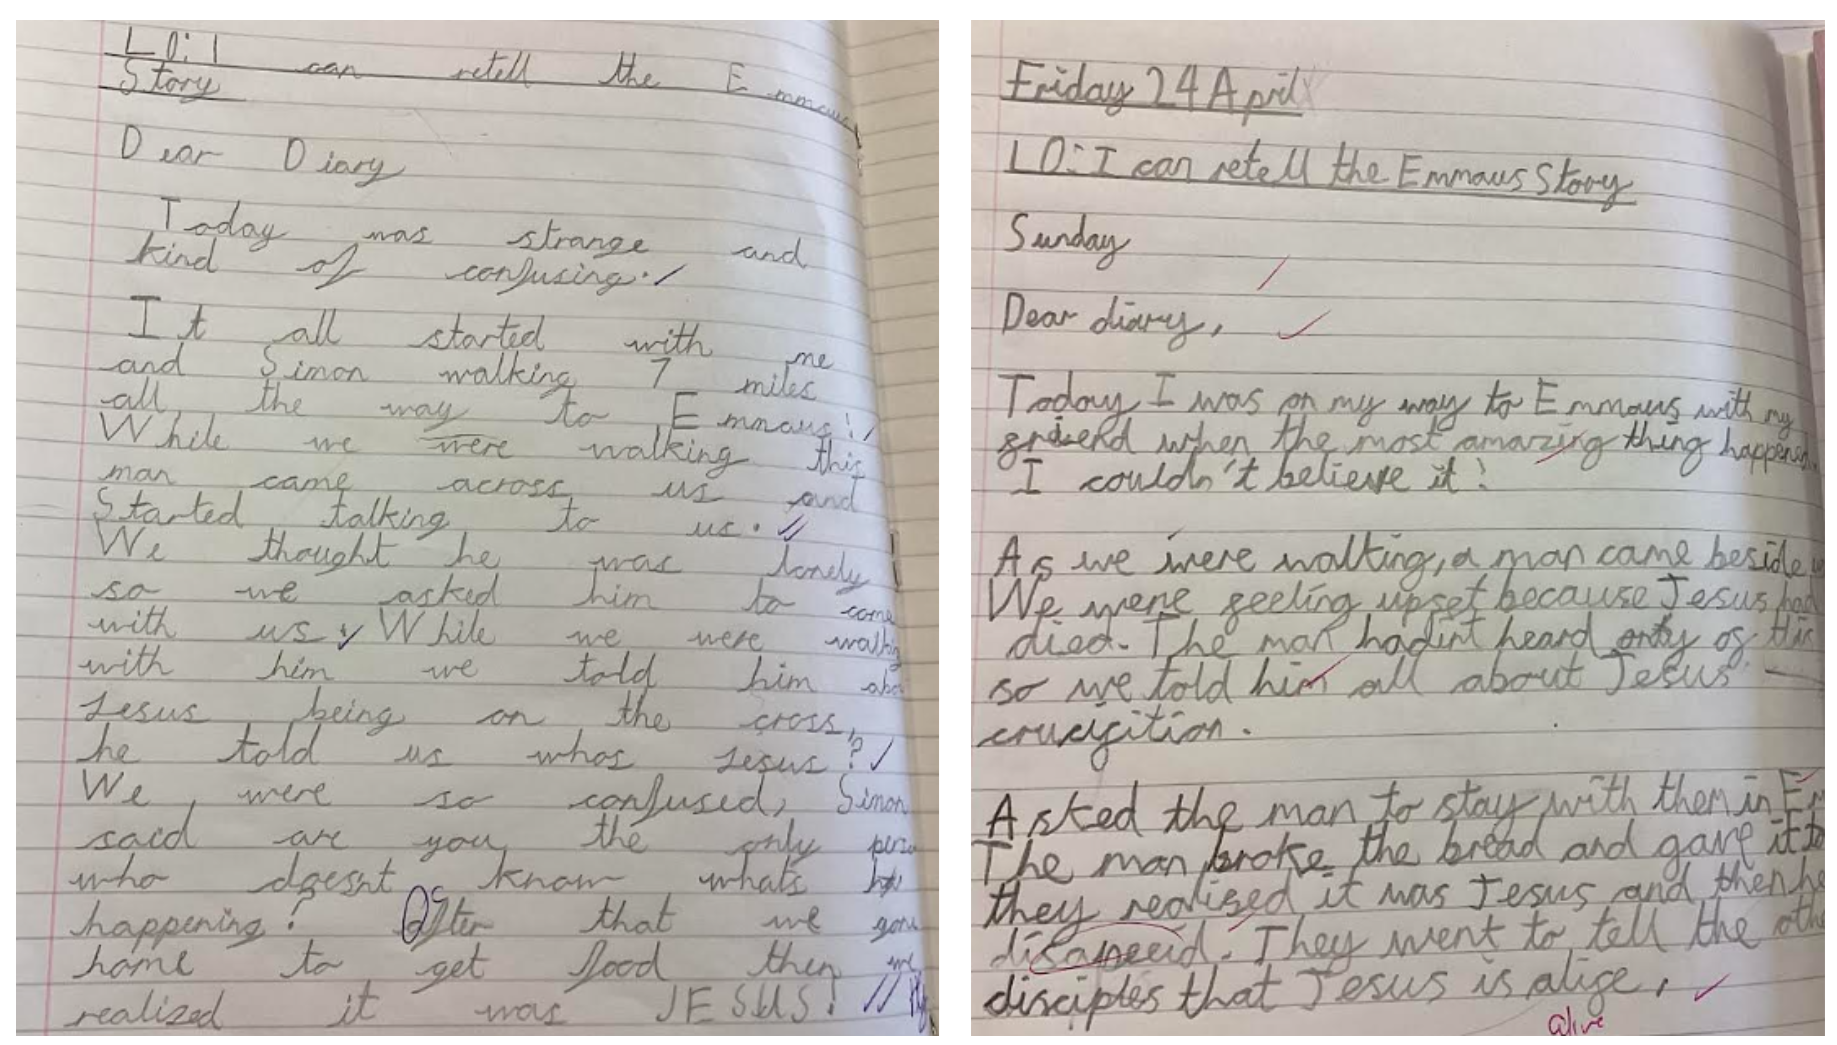 LO: I can retell the Emmaus
Story
Dear Diary
Today was strange and
kind of confusing.
It all started with me
and Simon walking 7 miles
all the way to Emmaus!
While we were walking this
man came across us and
Started talking to us.
We thought he was lonely
so we asked him to come
with us. While we were walking
with him we told him
Jesus being on the cross,
he told us whos Jesus?
We were so confused, Simon
said are you the only
who doesnt know whats
happening? After that we
home to get food then we
realized it was JESUS!
Friday 24 April
LO: I can retell the Emmaus Story
Sunday
Dear diary,
Today I was on my way to Emmaus with my
friend when the most amazing thing happened
I couldn't believe it!
As we were walking, a man came beside
We were feeling upset because Jesus had
died. The man hadint heard only of this
so we told him all about Jesus
crucifition.
Asked the man to stay with them in Em
The man broke the bread and gave it to
they realised it was Jesus and then he
disapeerd. They went to tell the othe
disciples that Jesus is alife.
alive